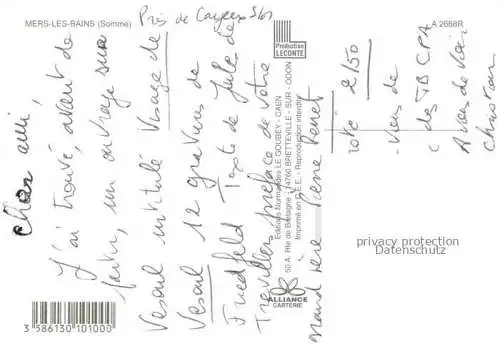 MERS-LES-BAINS (Somme)
Près de Cayeux S/
A 2688R
Production
LECONTE
Cher ami,
J'ai trouvé, avant de
partir, un ouvrage sur
Vesoul intitulé Visage de
Vesoul 12 gravures de
Friedfeld Texte de Jule de
Trevilles préface de votre
grand père Pierre Renet
Editions Normandes LE GOUBEY - CAEN
50 A. Rte de Bretagne - 14760 BRETTEVILLE - SUR - ODON
Imprimé en C.E.E. - Reproduction interdite
2150
Vous de
(des TB CPA
A vous de voir
Christian
privacy protection
Datenschutz
ALLIANCE
CARTERIE
3 586130 101000